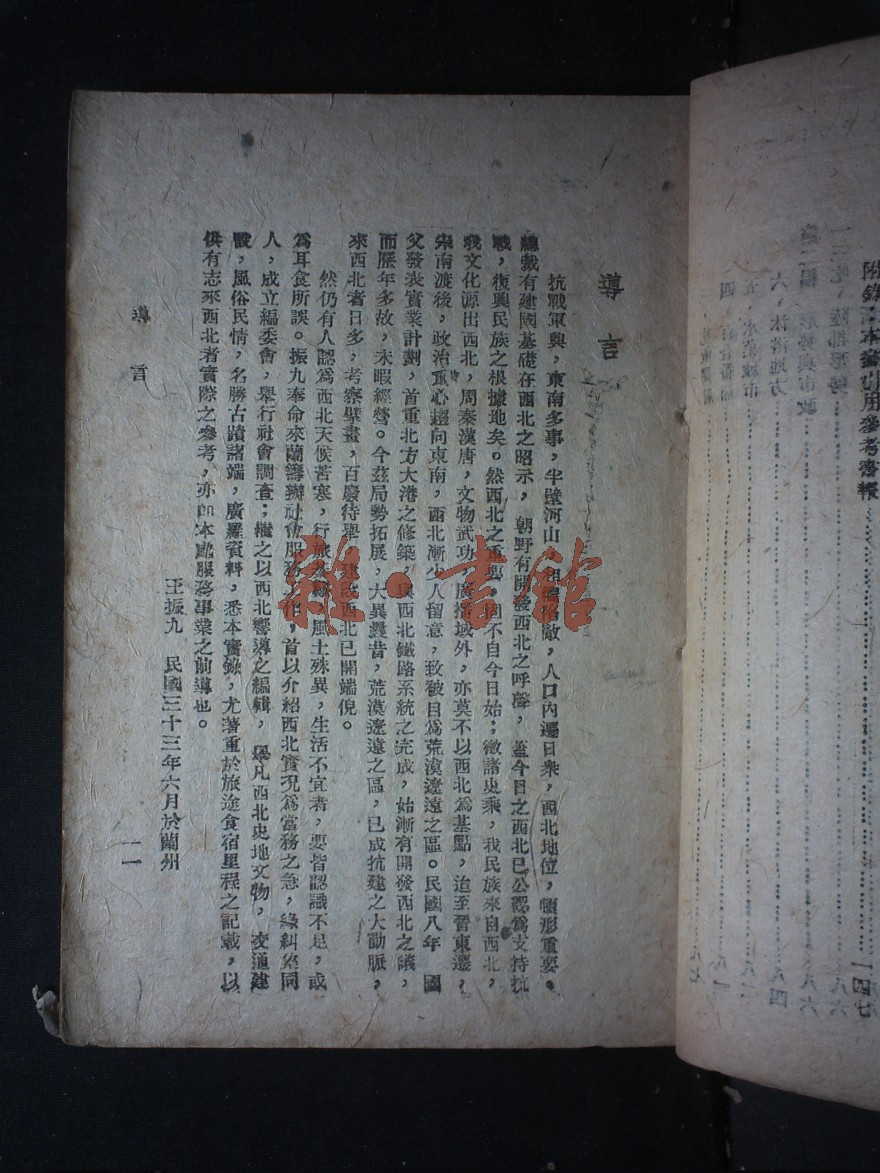 導言
抗戰軍興，東南多事，半壁河山，相繼淪敵，人口內遷日衆，西北地位，頓形重要。
總裁有建國基礎在西北之昭示，朝野有開發西北之呼聲，蓋今日之西北已公認爲支持抗
戰，復興民族之根據地矣。然西北之重要，固不自今日始；徵諸史乘，我民族來自西北，
我文化源出西北，周秦漢唐，文物武功，廣播域外，亦莫不以西北爲基點，迨至晉東遷，
宋南渡後，政治重心趨向東南，西北漸少人留意，致被目爲荒漠遼遠之區。民國八年　國
父發表實業計劃，首重北方大港之修築，與西北鐵路系統之完成，始漸有開發西北之議，
而歷年多故，未暇經營。今茲局勢拓展，大異曩昔，荒漠遼遠之區，已成抗建之大動脈，
來西北者日多，考察擘畫，百廢待舉，建設西北已開端倪。
然仍有人認爲西北天候苦寒，行旅，風土殊異，生活不宜者，要皆認識不足，或
爲耳食所誤。振九奉命來蘭籌辦社會服務工作，首以介紹西北實况爲當務之急，爰糾集同
人，成立編委會，舉行社會調查；繼之以西北嚮導之編輯，舉凡西北史地文物，交通建
設，風俗民情，名勝古蹟諸端，廣羅資料，悉本實錄，尤著重於旅途食宿里程之記載，以
供有志來西北者實際之參考，亦即本處服務事業之前導也。
王振九　民國三十三年六月於蘭州
導言
一一
雜·書館
附錄：本書引用參考書報 一四七
六、沐浴地方 八四